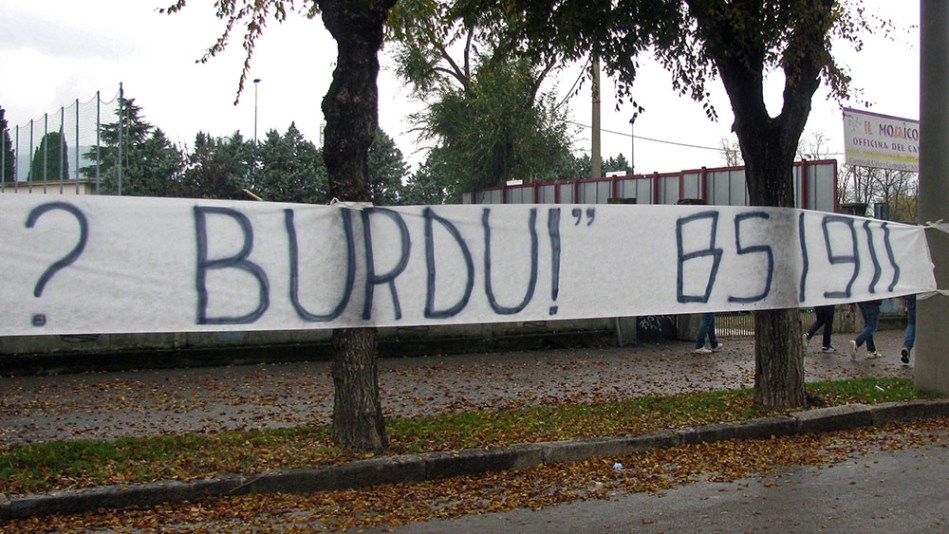 ? BURDU!” BS1911
IL MO
OFFICINA DEL CA